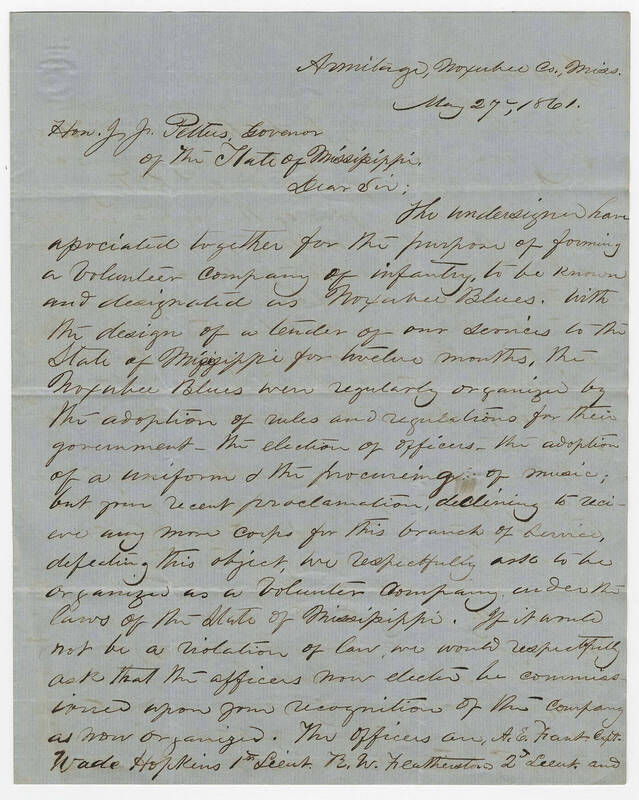 Armitage, Noxubee Co., Miss.
May 27, 1861.
Hon. J. J. Pettus, Govenor
of the State of Missisippi.
Dear Sir;
The undersigned have
associated together for the purpose of forming
a Volunteer company of infantry, to be known
and designated as Noxubee Blues. With
the design of a tender of our services to the
State of Missisippi for twelve months, the
Noxubee Blues were regularly organized by
the adoption of rules and regulations for their
government - the election of officers - the adoption
of a uniform & the procuring of music;
but your recent proclamation, declining to reci-
eve any more corps for this branch of service,
defecting this object, we respectfully ask to be
organized as a Volunteer Company under the
laws of the State of Missisippi. If it would
not be a violation of law, we would respectfully
ask that the officers now elected be commiss-
ioned upon your recognition of the company
as now organized. The officers are, A. E. Capt.
Wade Hopkins 1st Lieut. B. W. Featherston 2d Lieut. and